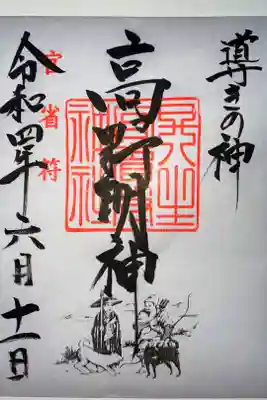 導きの神
高野明神
丹生
神社
官省符
令和四年六月十一日